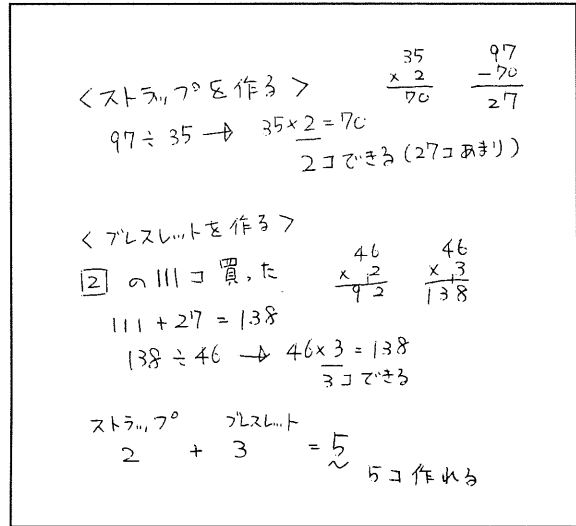 <ストラップを作る>
97÷35 → 35×2=70
2コできる(27コあまり)
35
×2
70
97
-70
27
<ブレスレットを作る>
2 の111コ買った
111+27=138
138÷46 → 46×3=138
3コできる
46
×2
92
46
×3
138
ストラップ ブレスレット
2 + 3 = 5
5コ作れる